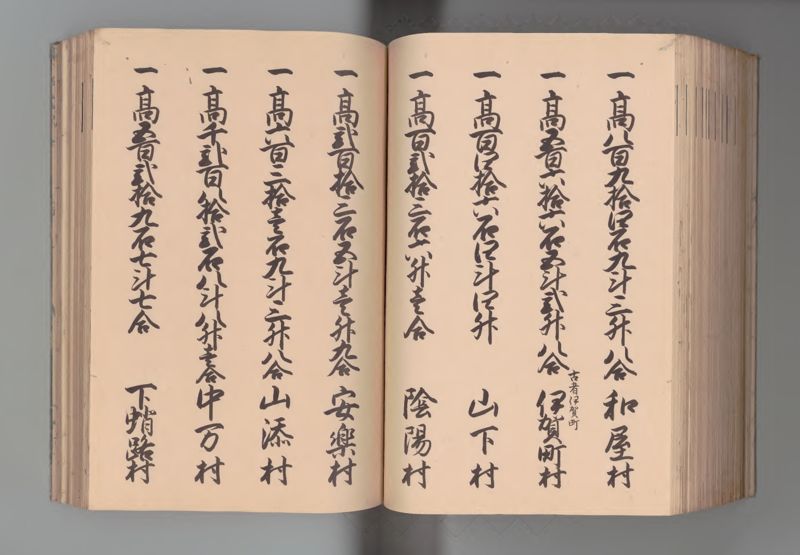 一高八百九拾四石九斗三升八合 和屋村
一高五百六拾六石五斗弐升八合 伊賀町村
古者伊賀町
一高百四拾六石四斗四升 山下村
一高百弐拾三石六升壱合 陰陽村
一高弐百拾三石五斗壱升九合 安樂村
一高六百三拾壱石九斗三升八合 山添村
一高千弐百八拾弐石八斗八升壱合 中万村
一高五百弐拾九石七斗七合 下蛸路村